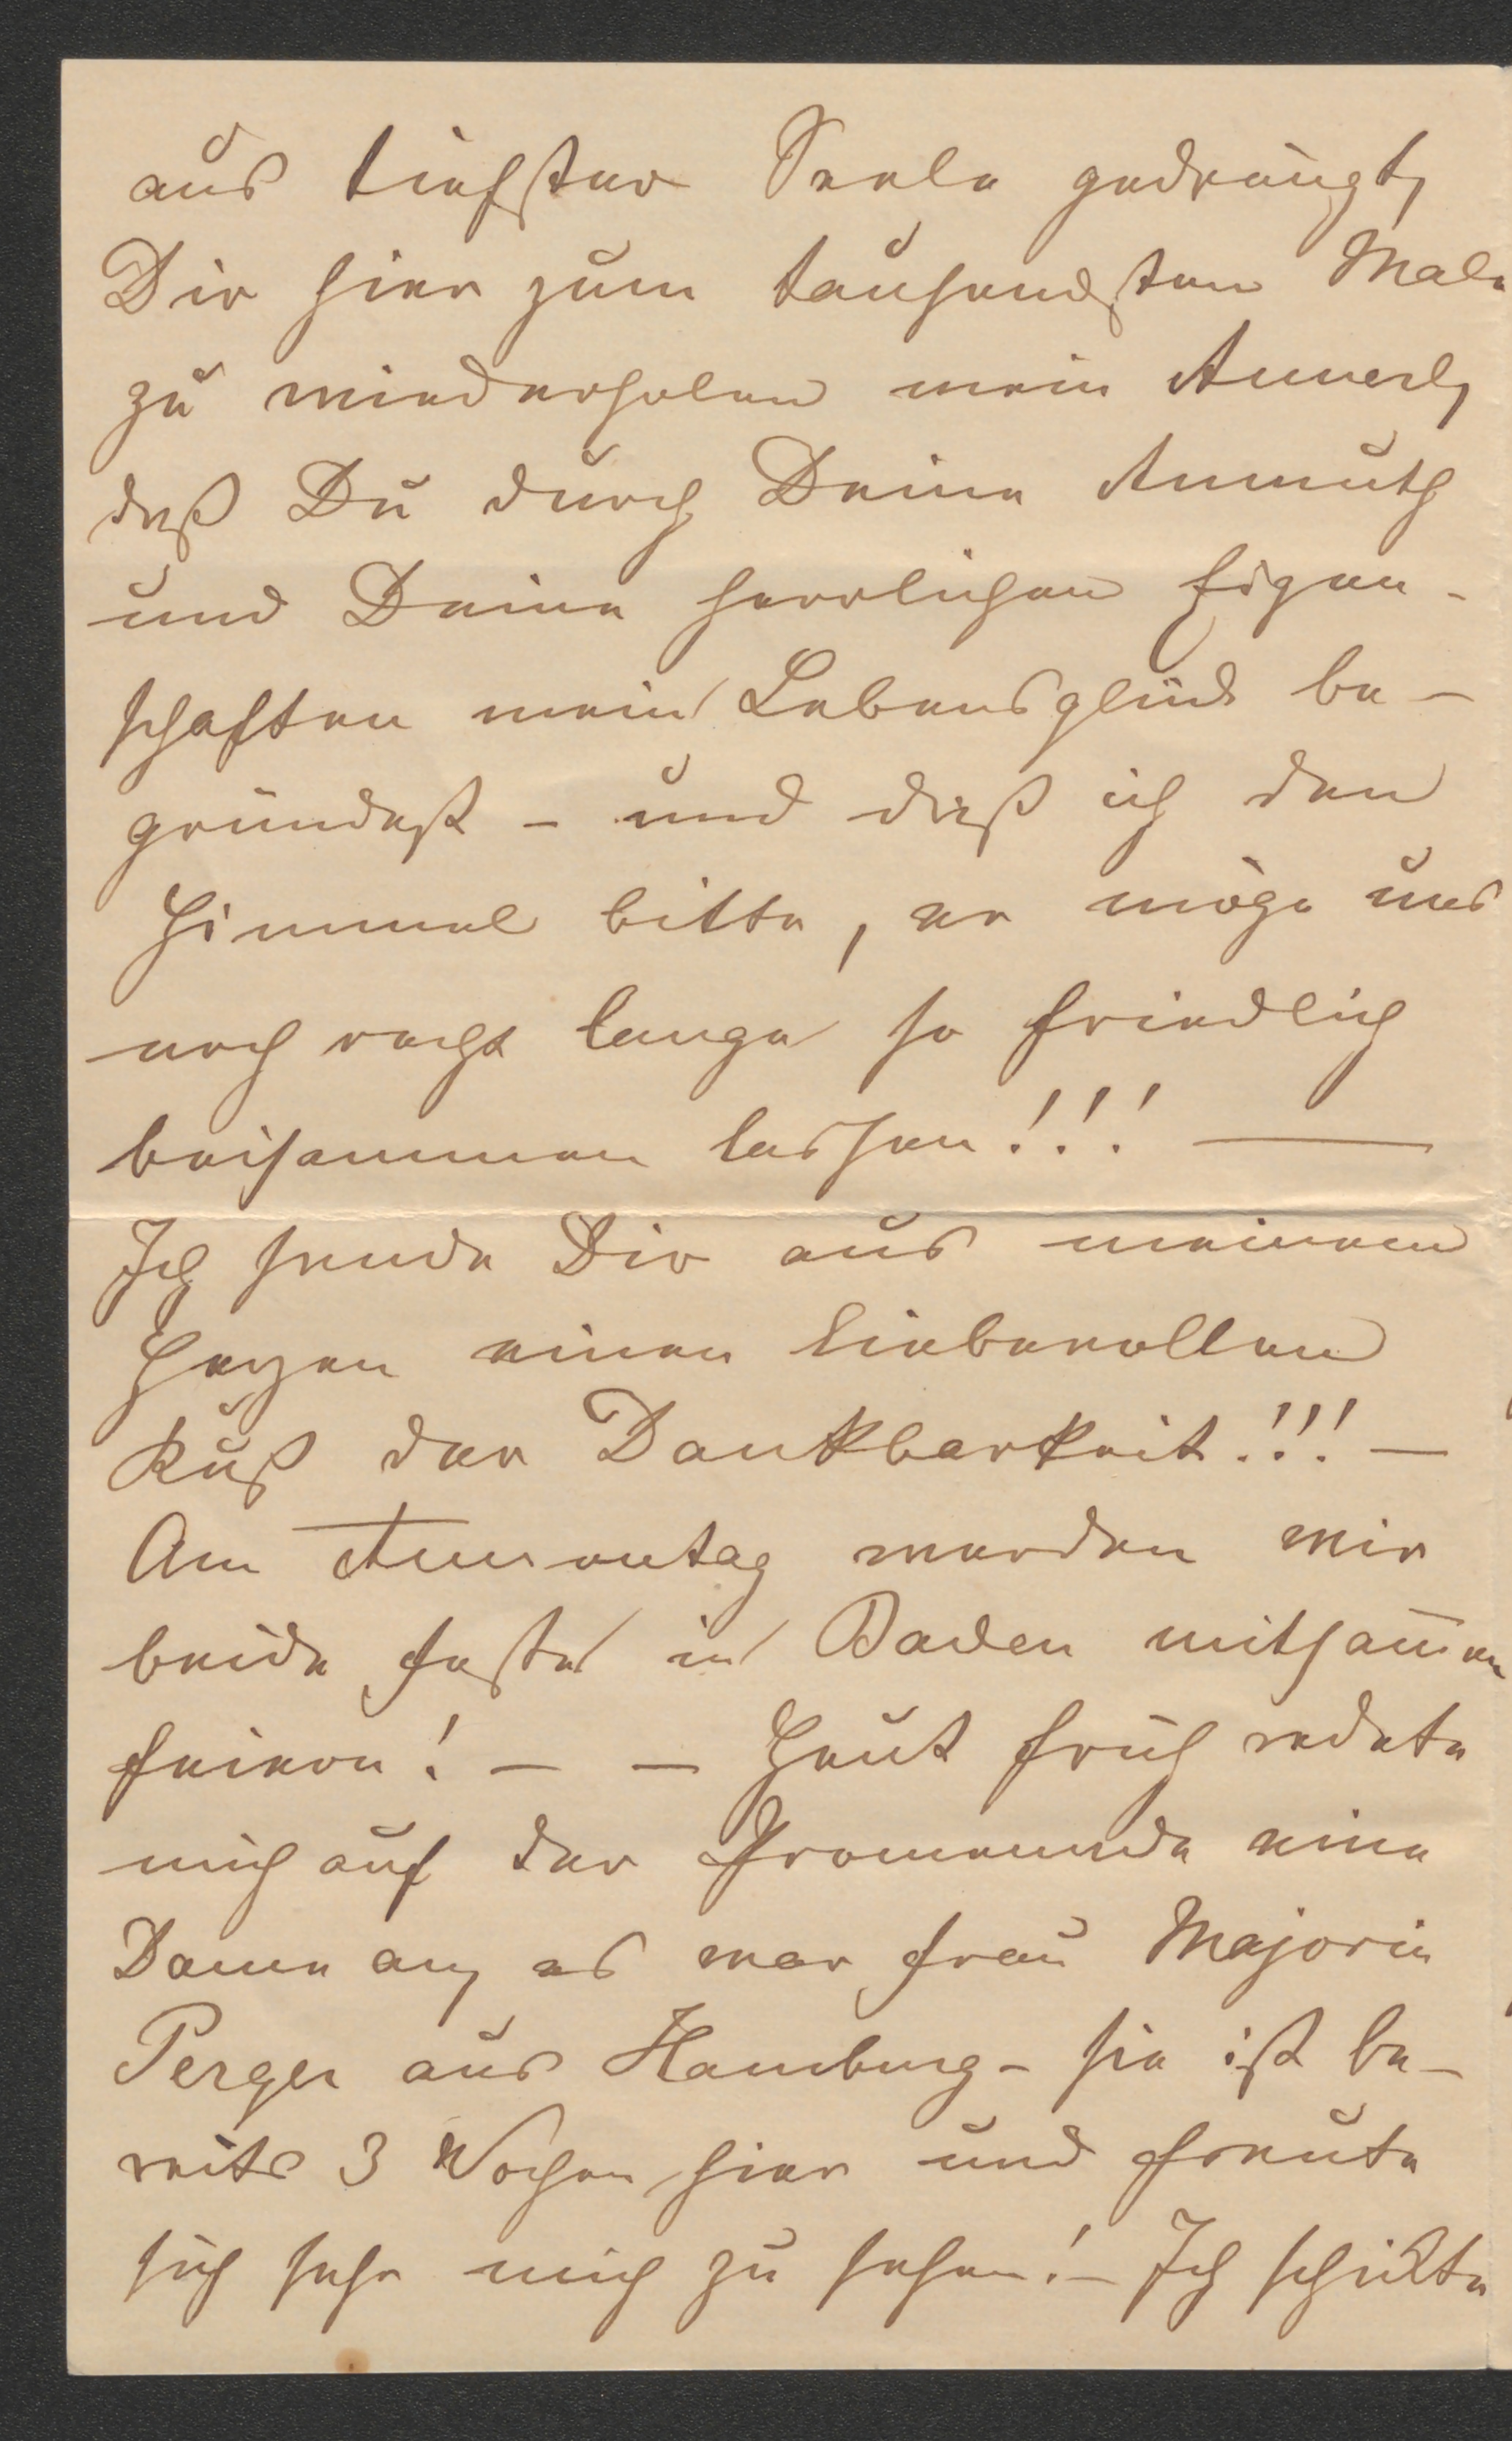 aus tiefster Seele gedrängt,
Dir hier zum tausendsten Male
zu wiederholen mein Annerl,
daß Du durch Deine Anmuth
und Deine herrlichen Eigen-
schaften mein Lebensglück be-
gründest - und daß ich den
Himmel bitte, er möge uns
noch recht lange so friedlich
beisammen lassen!!! —
Ich sende Dir aus meinem
Herzen einen liebevollen
Kuß der Dankbarkeit!!! —
Am Annentag werden wir
beide Feste in Baden mitsamen
feiern! — — Heut früh redete
mich auf der Promenade eine
Dame an, es war Frau Majorin
Perger aus Hamburg - sie ist be-
reits 3 Wochen hier und freute
sich sehr mich zu sehen! — Ich schickte